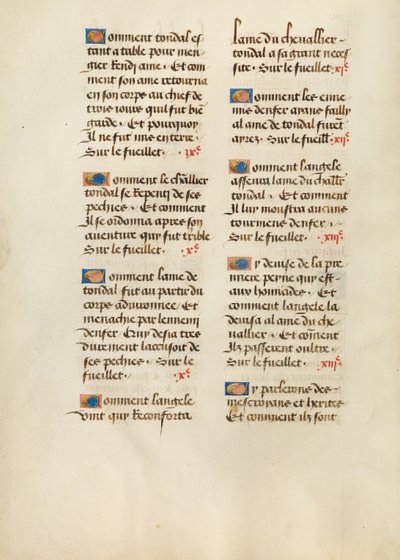 Comment tondal es
tant a table pour men
gier Rendi ame. Et com
ment son ame retourna
en son corps au chief de
trois iours quil fut bie
garde. Et pourquoy
Il ne fut mis en terre.
Sur le fueillet. .ix.
Comment le chlier
tondal se Repenti de ses
pechies. Et comment
Il se ordonna apres son
auenture quy fut trible
Sur le fueillet. .x.
Comment lame de
tondal fut au partir du
corps aduironnee Et
menachie par lennemi
denfer Et quy desia tres
durement laccusoit de
ses pechies. Sur le
fueillet. .x.
Comment langele
vint quy Reconforta
lame du cheuallier
tondal a sa grant neces
site. Sur le fueillet .xi.
Comment les enne
mis denfer ayans failly
al ame de tondal furet
ayrez. Sur le fueill. .xii.
Comment langele
asseura lame du challr
tondal. Et comment
Il luy moustra aucuns
tourmens denfer.
Sur le fueillet. .xiii.
Cy deuise de la pre
miere peyne quy est
aux homicides. Et
comment langele la
deuisa al ame du che
uallier. Et coment
Ilz passerent oultre.
Sur le fueillet. .xiii.
Cy parlerons des
mescreans et herites
Et comment ilz sont